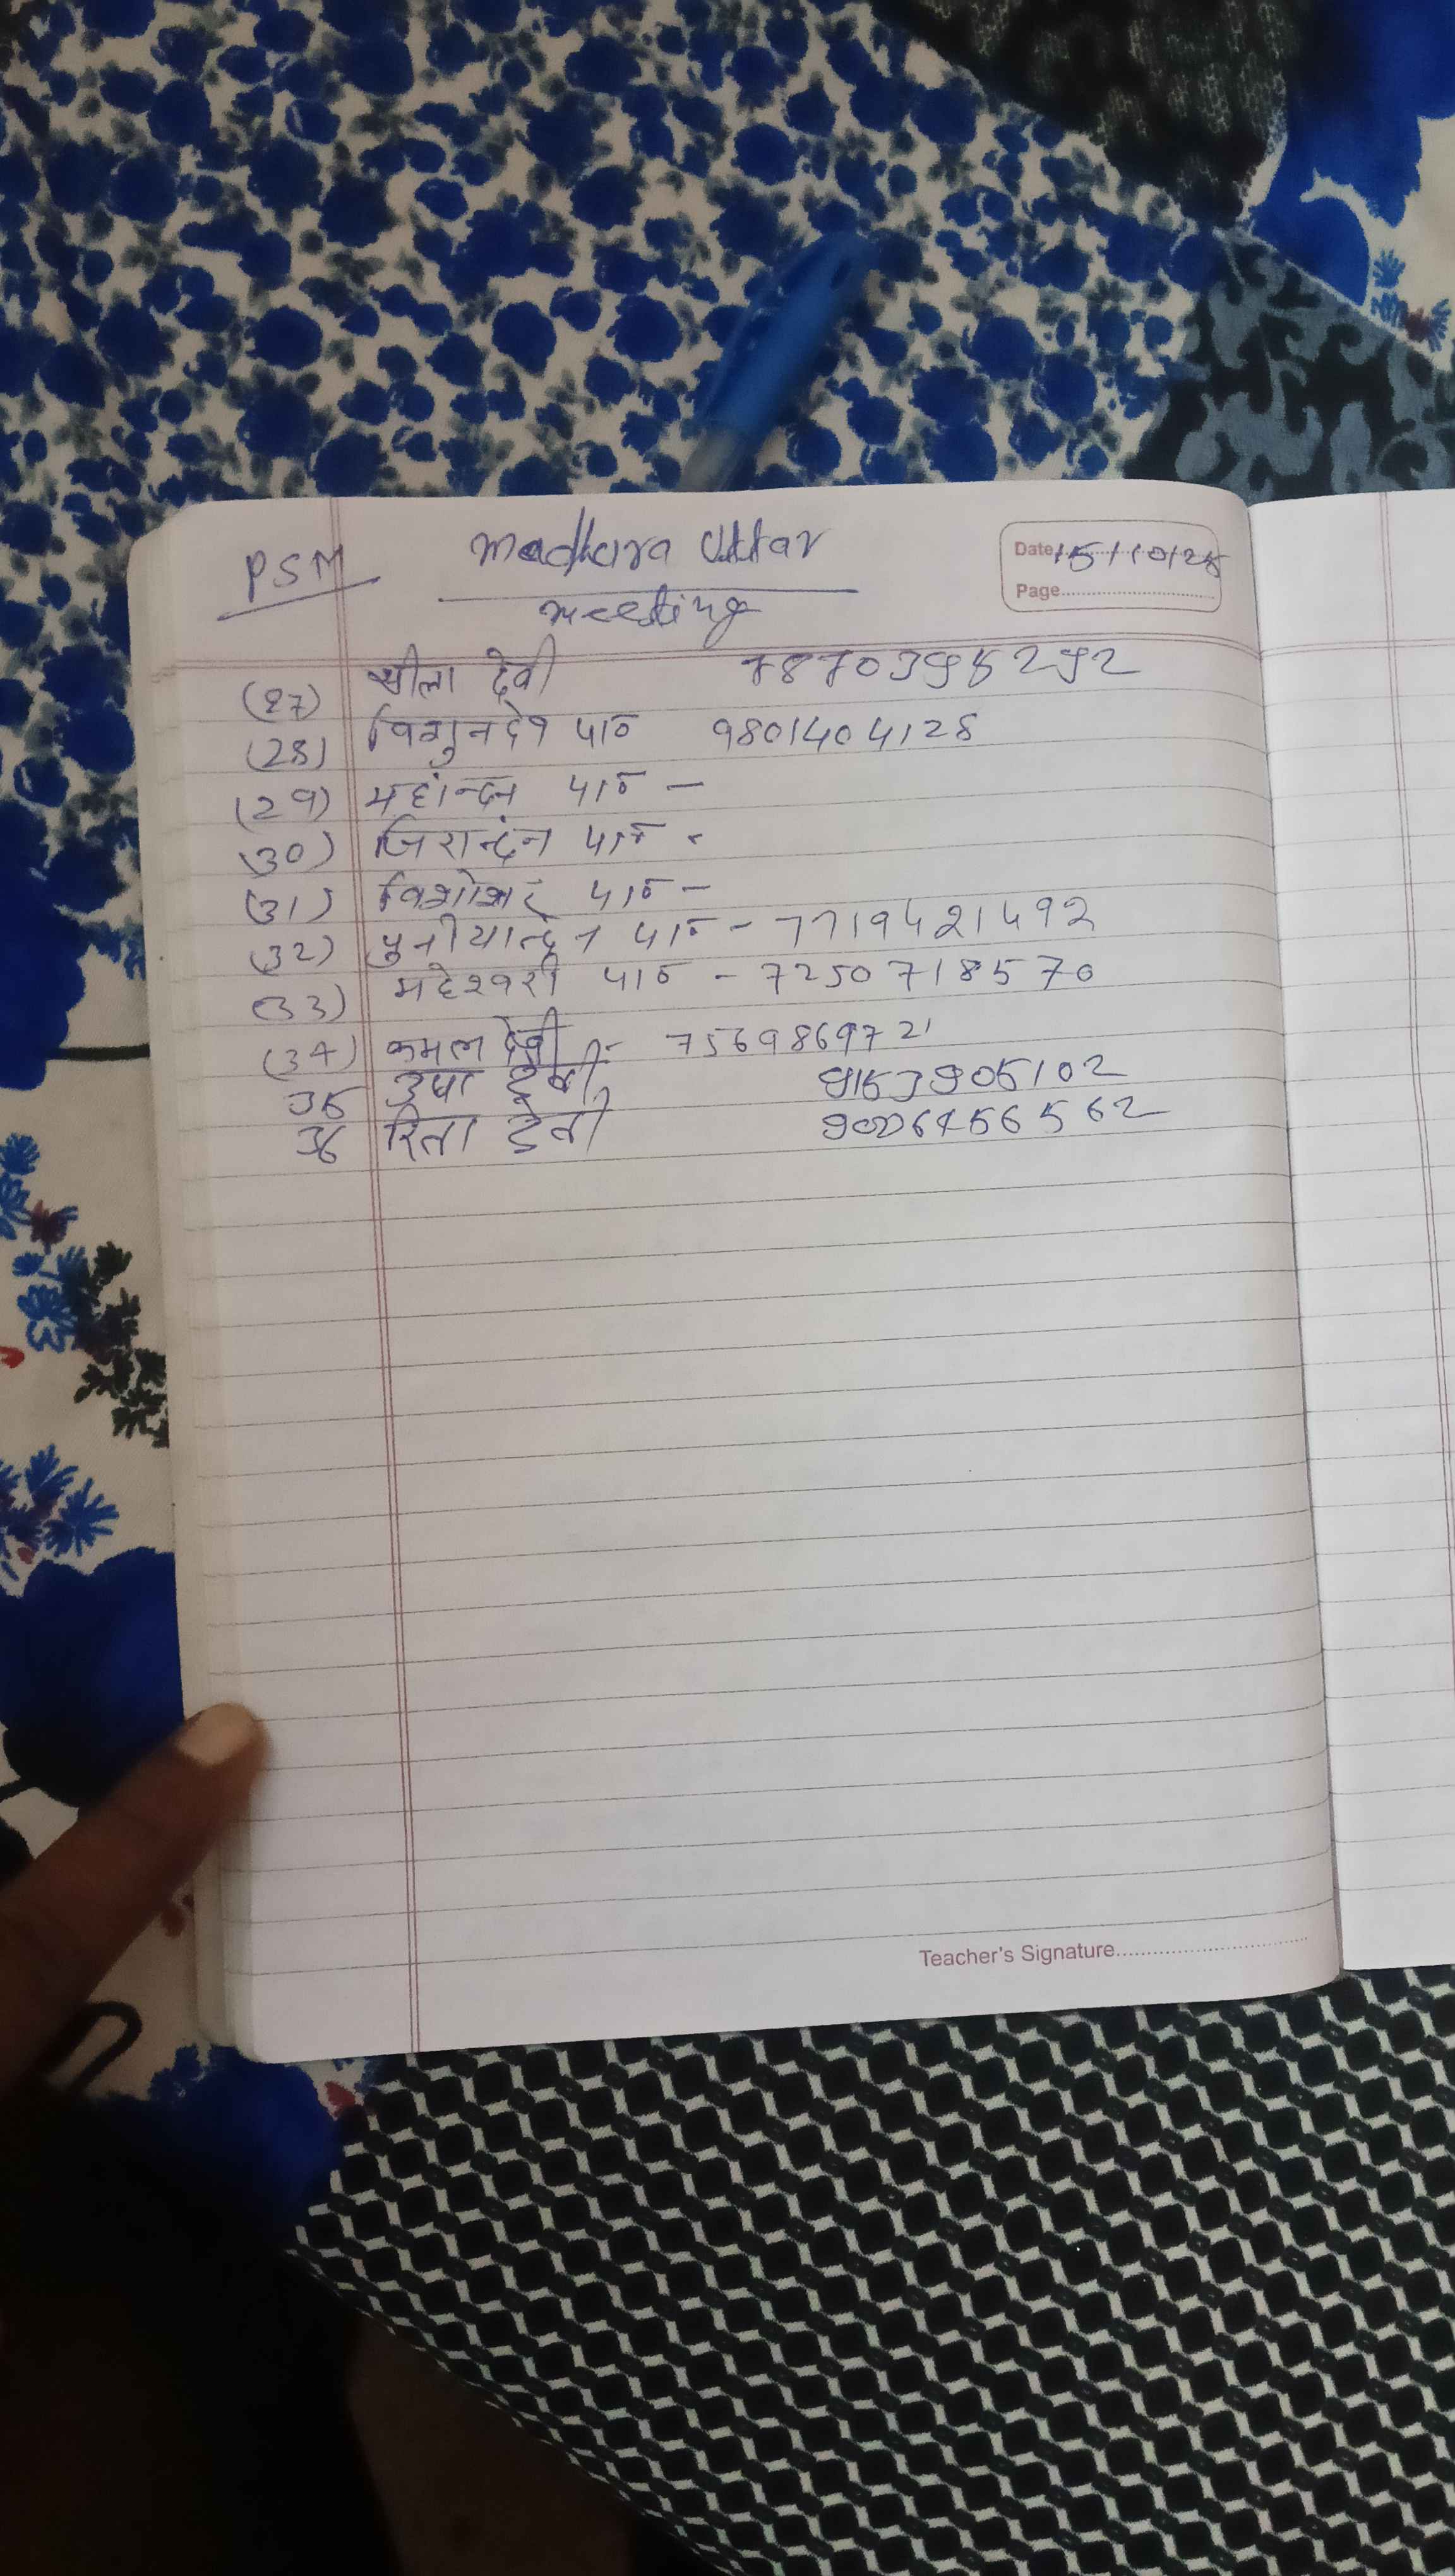 PSM
Madhura Uttar
meeting
Date 15/10/25
Page
(27) शीला देवी 7870395292
(28) विशुनदेव पा० 9801404128
(29) महांन्दन पा० -
(30) जिरान्दंन पा० -
(31) विशेशर पा० -
(32) पुनीयानन्दन पा० - 7719421492
(33) महेश्वरी पा० - 7250718570
(34) कमल देवी - 7569869721
35 उषा देवी 9153905102
36 रिता देवी
Teacher's Signature